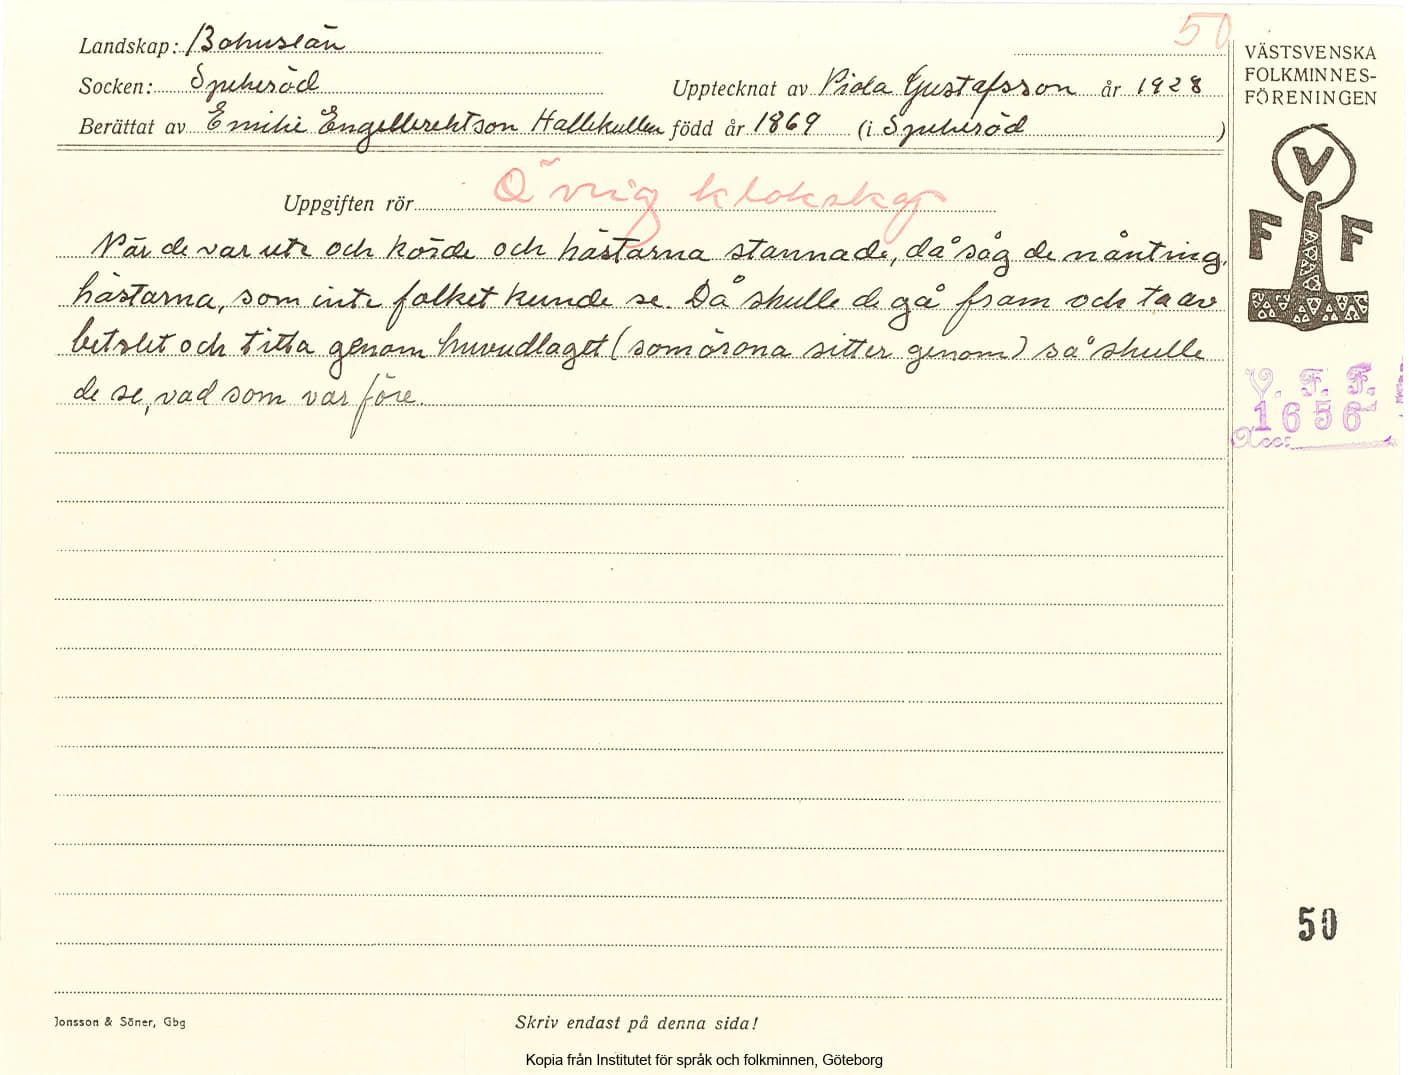 50
Landskap: Bohuslän
Socken: Spekeröd
Upptecknat av Vida Gustafsson år 1928
Berättat av Emilie Engelbrektson Hallekullen född år 1869 (i Spekeröd)
Uppgiften rör Övrig klokskap
När de var ute och körde och hästarna stannade, då såg de nånting,
hästarna, som inte folket kunde se. Då skulle de gå fram och ta av
betslet och titta genom huvudlaget (som örona sitter genom) så skulle
de se, vad som var före.
VÄSTSVENSKA
FOLKMINNES-
FÖRENINGEN
V
F F
V. F. F.
1656
Acc:
50
Jonsson & Söner, Gbg
Skriv endast på denna sida!
Kopia från Institutet för språk och folkminnen, Göteborg